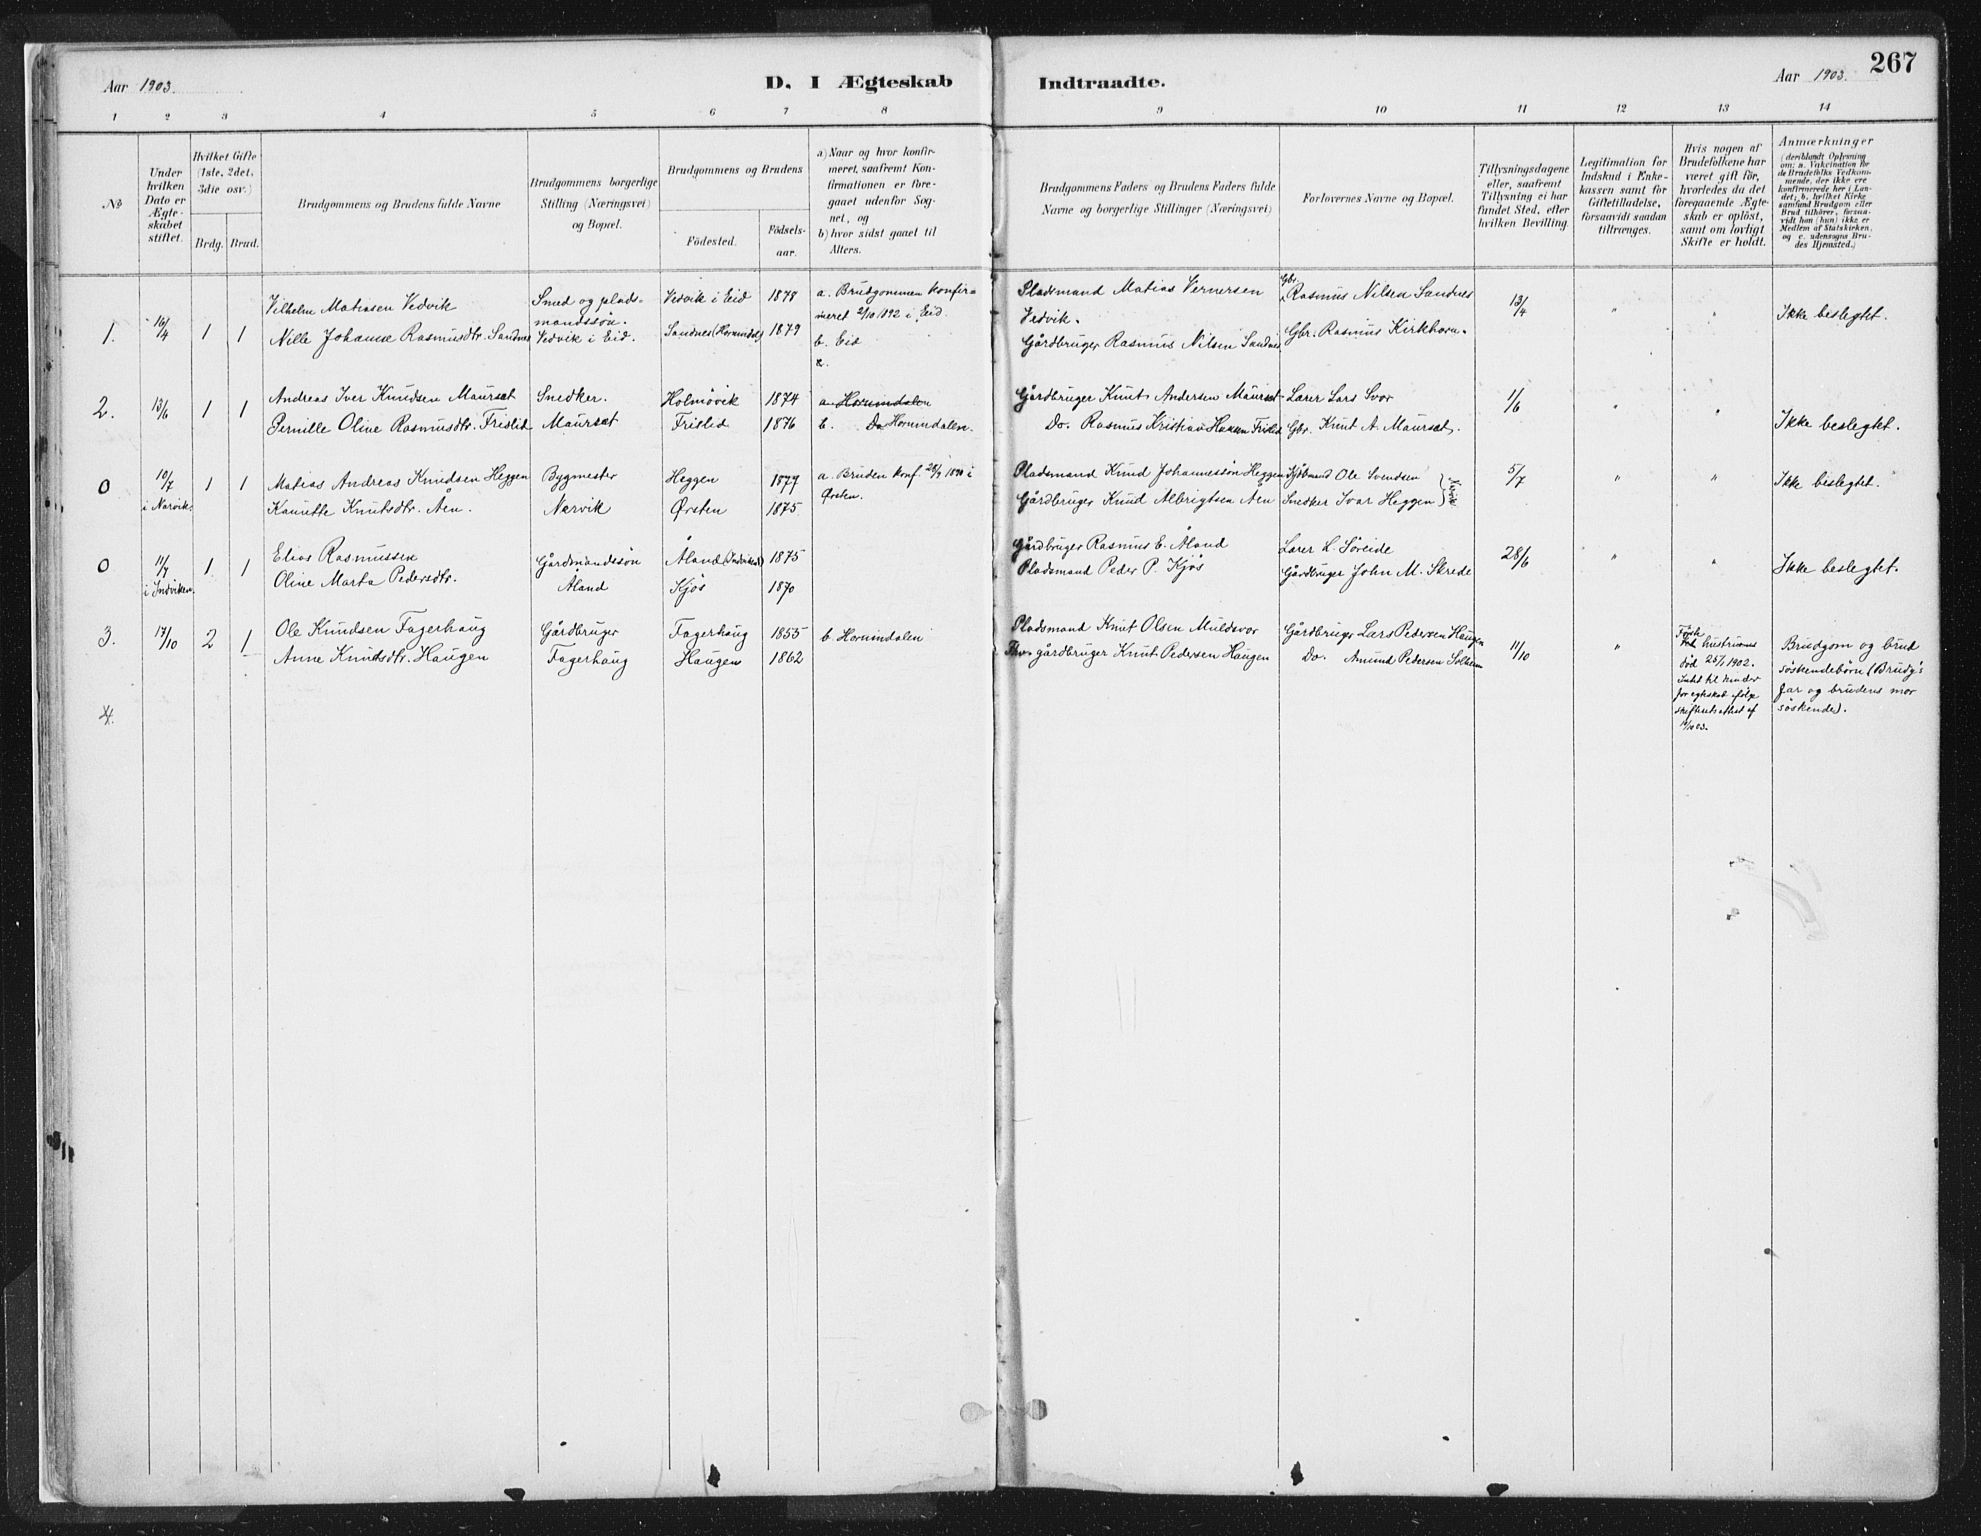 Aar 1903.
D. I Ægteskab
Indtraadte.
Aar 1903.
267
1 2 3 4 5 6 7 8 9 10 11 12 13 14
No
Under hvilken Dato er Ægteskabet stiftet.
Hvilket Gifte (1ste, 2det, 3die osv.)
Brdg. Brud.
Brudgommens og Brudens fulde Navne
Brudgommens borgerlige Stilling (Næringsvei) og Bopæl.
Brudgommens og Brudens
Födested.
Födselsaar.
a) Naar og hvor konfirmeret, saafremt Konfirmationen er foregaaet udenfor Sognet, og
b) hvor sidst gaaet til Alters.
Brudgommens Faders og Brudens Faders fulde Navne og borgerlige Stillinger (Næringsvei)
Forlovernes Navne og Bopæl.
Tillysningsdagene eller, saafremt Tillysning ei har fundet Sted, efter hvilken Bevilling.
Legitimation for Indskud i Enkekassen samt for Giftetilladelse, forsaavidt saadan tiltrænges.
Hvis nogen af Brudefolkene har været gift før, hvorledes da det foregaaende Ægteskab er oplöst, samt om lovligt Skifte er holdt.
Anmærkninger
(deriblandt Oplysning om: a. Vakcination for de Brudefolks Vedkommende, der ikke ere konfirmerede her i Landet; b. hvilket Kirkesamfund Brudgom eller Brud tilhörer, forsaavidt han (hun) ikke er Medlem af Statskirken, og c. udensogns Brudes Hjemsted.)
1. 16/4 1 1
Vilhelm Matiasen Vedvik
Nille Johanne Rasmusdtr. Sandnes
Smed og pladsmandssön.
Vedvik i Eid.
Vedvik i Eid 1878
Sandnes (Hornindal) 1879
a. Brudgommen konfirmeret 2/10 1892 i Eid.
b. Eid
Pladsmand Matias Vernersen Vedvik.
Gårdbruger Rasmus Nilsen Sandnes
Gbr. Rasmus Nilsen Sandnes
Gbr. Rasmus Kirkhorn.
13/4 " "
Ikke beslegtet.
2. 13/6 1 1
Andreas Iver Knudsen Maurset
Pernille Oline Rasmusdtr. Frislid
Snedker.
Maurset
Holmövik 1874
Frislid 1876
a. Hornindalen
b. Do Hornindalen.
Gårdbruger Knut Andersen Maurset
Do. Rasmus Kristian Hansen Frislid
Lærer Lars Svor
Gbr. Knut A. Maurset.
1/6 " "
Ikke beslegtet.
0 10/7 i Narvik. 1 1
Matias Andreas Knudsen Heggen
Kanutte Knutsdtr. Åen.
Bygmester
Narvik
Heggen 1877
Ørsten 1875
a. Bruden konf. 28/9 1890 i Ørsten.
Pladsmand Knud Johannessön Heggen
Gårdbruger Knud Albrigtsen Aen
Kjöbmand Ole Svendsen
Snedker Ivar Heggen } Narvik
5/7 " "
Ikke beslegtet.
0 11/7 i Indviken. 1 1
Elias Rasmussen
Oline Marta Pedersdtr.
Gårdmandssön
Åland
Åland (Indviken) 1875
Kjös 1870
Gårdbruger Rasmus E. Åland
Pladsmand Peder P. Kjös
Lærer L. Søreide
Gårdbruger John M. Skrede
28/6 " "
Ikke beslegtet.
3. 17/10 2 1
Ole Knudsen Fagerhaug
Anne Knudsdtr. Haugen
Gårdbruger
Fagerhaug
Fagerhaug 1855
Haugen 1862
b. Hornindalen
Pladsmand Knut Olsen Muldsvor
gårdbruger Knut Pedersen Haugen
Gårdbruger Lars Pedersen Haugen
Do. Amund Pedersen Solheim
11/10 "
Første hustrue död 25/1 1902.
skifteretsattest af
Brudgom og brud söskendebörn (Brudg's far og brudens mor söskende).
4.